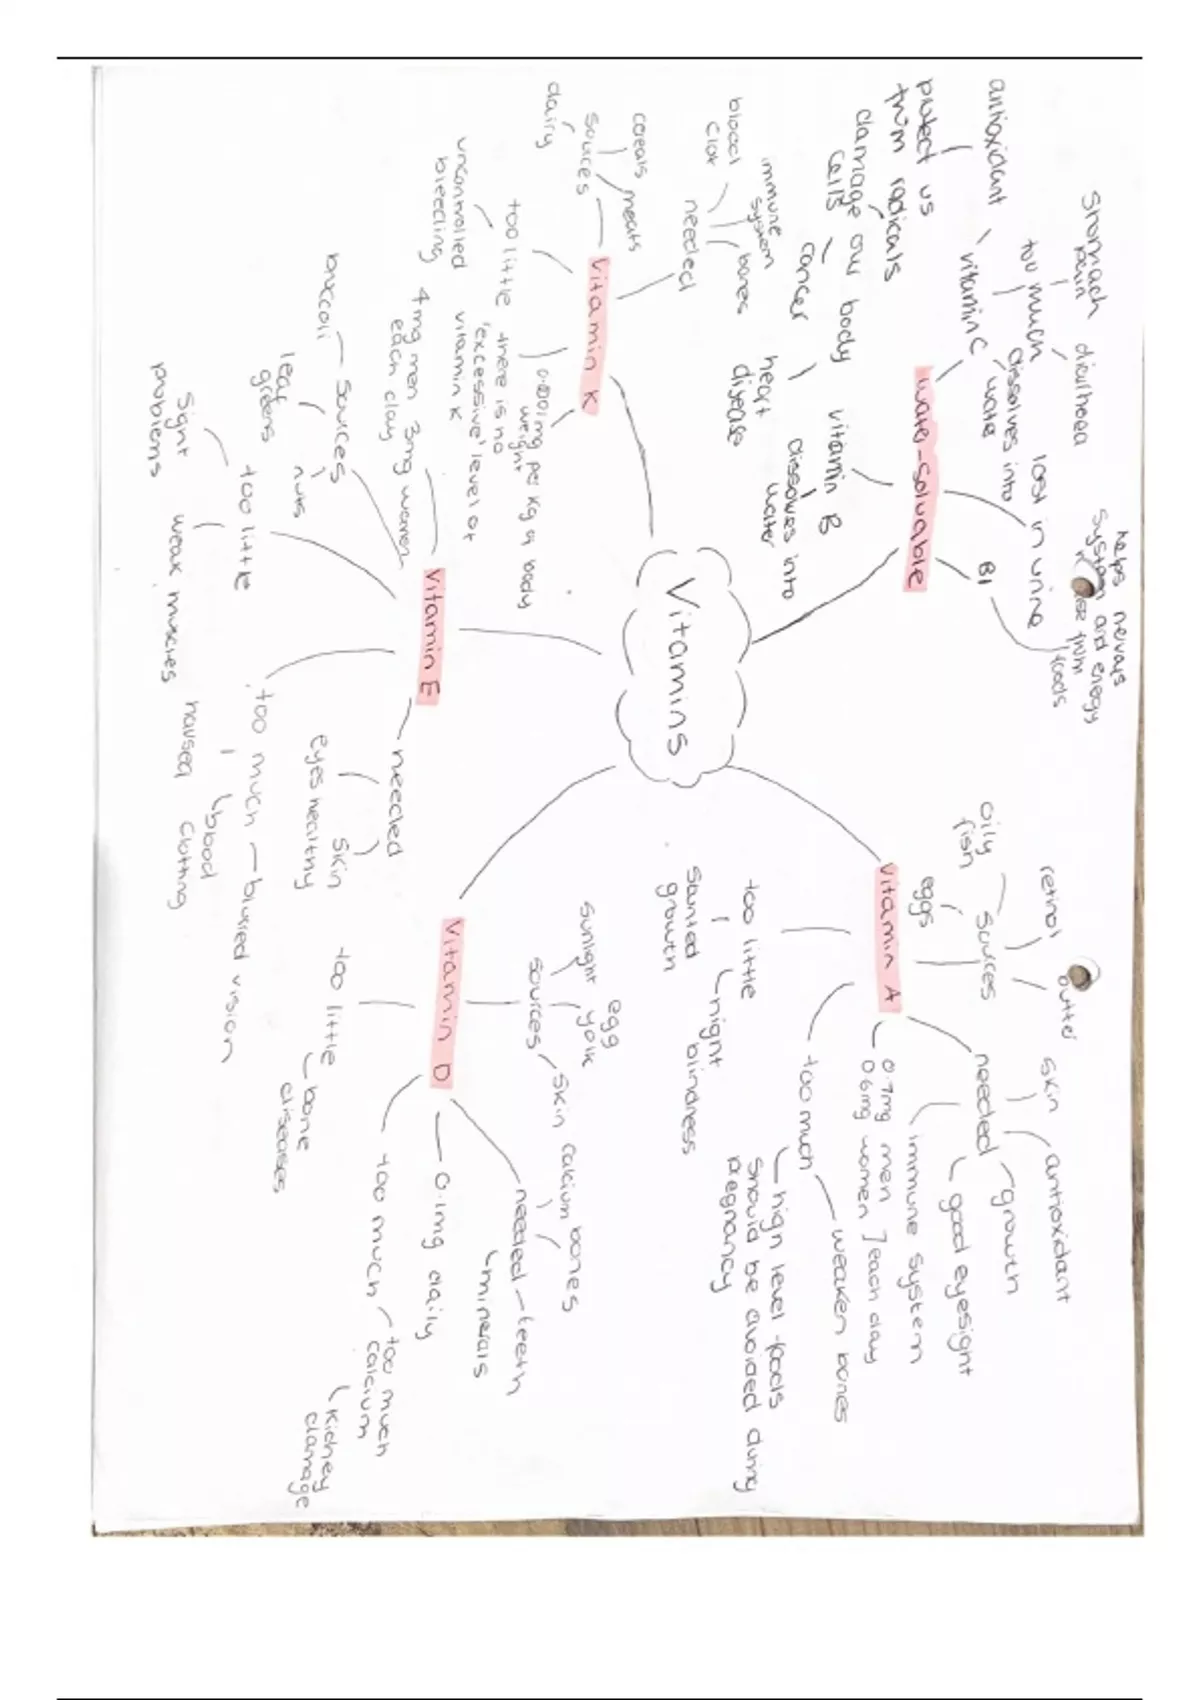 Vitamins
water-soluable
vitamin C
antioxidant
protect us
from radicals
damage our body
cells
cancer
heart
disease
too much
Stomach
pain
diarrhoea
dissolves into
water
lost in urine
B1
helps nervous
system and energy
from
foods
vitamin B
dissolves into
water
Vitamin A
sources
oily
fish
eggs
retinol
butter
needed
skin
antioxidant
growth
good eyesight
immune system
0.7mg men
0.6mg women ] each day
too much
weaken bones
high level foods
should be avoided during
pregnancy
too little
night
blindness
stunted
growth
Vitamin K
sources
dairy
cereals
meats
needed
blood
clot
immune
system
bones
too little
uncontrolled
bleeding
there is no
'excessive' level of
vitamin K
0.001mg per kg of body
weight
Vitamin E
4mg men 3mg women
each day
sources
broccoli
leaf
greens
nuts
too little
sight
problems
weak muscles
too much
blurred vision
nausea
blood
clotting
needed
skin
eyes healthy
Vitamin D
sources
sunlight
egg
yolk
skin
needed
calcium
bones
teeth
minerals
0.1mg daily
too much
too much
calcium
kidney
damage
too little
bone
diseases